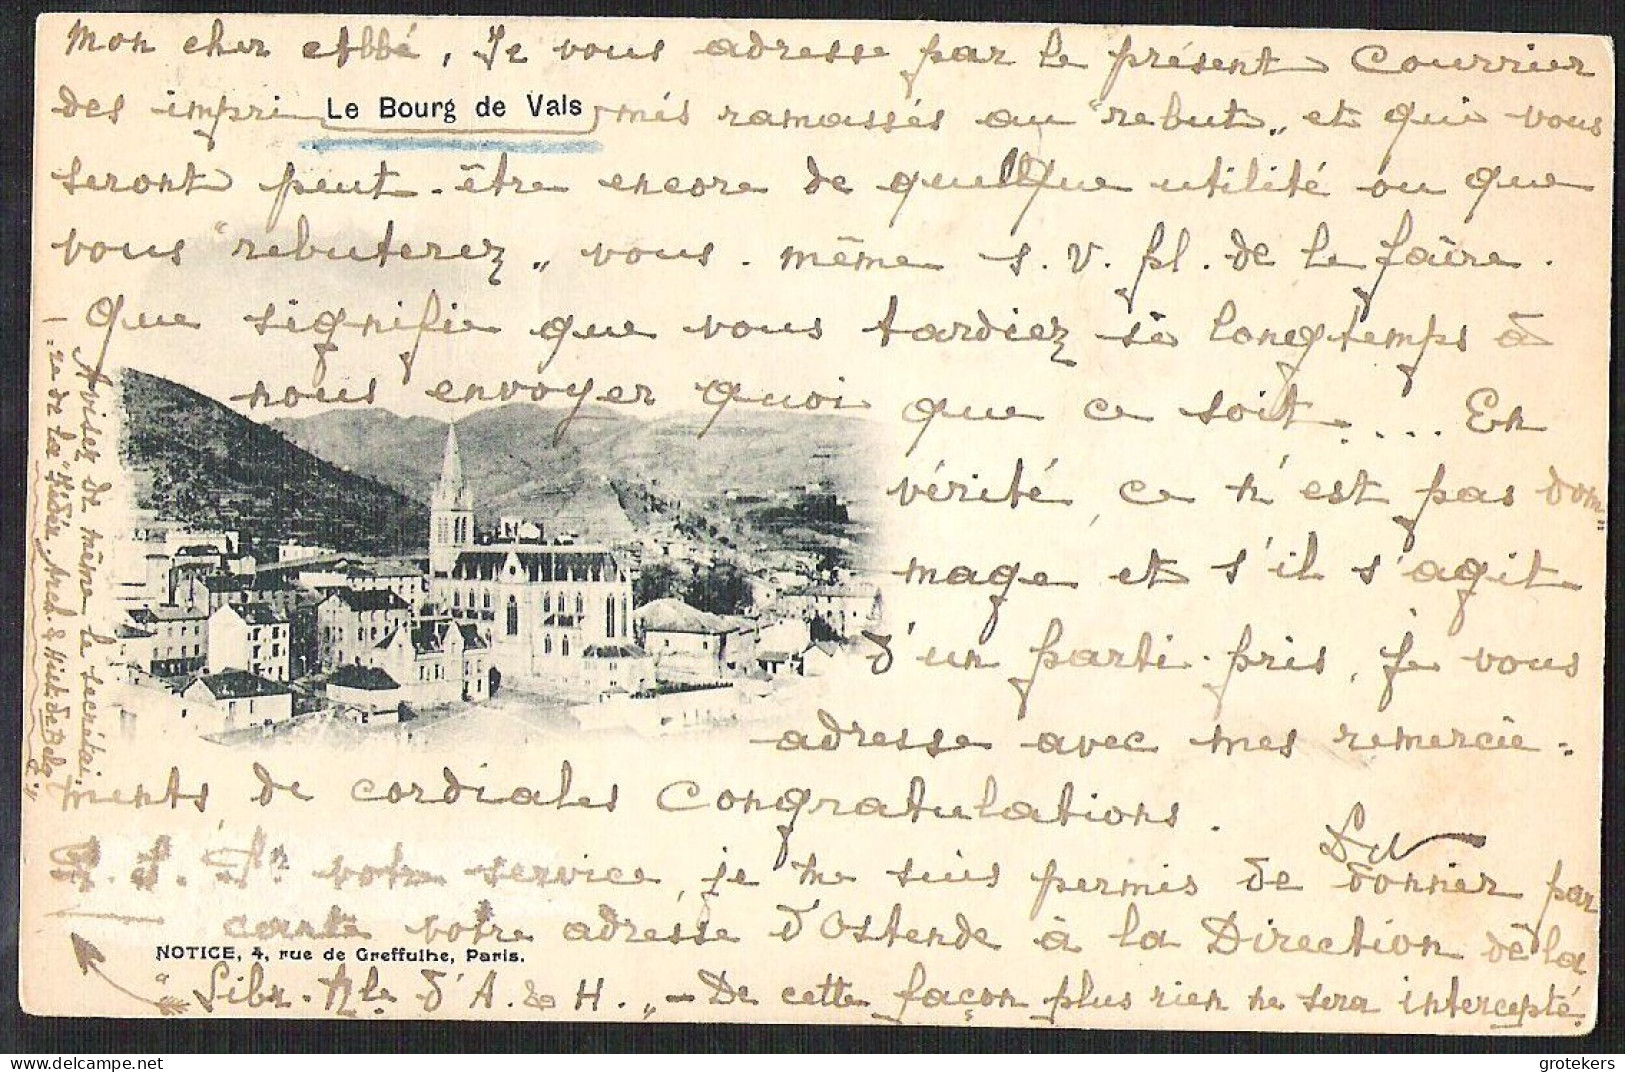 Mon cher Abbé, Je vous adresse par le présent Courrier
des impri Le Bourg de Vals més ramassés au "rebut„ et qui vous
seront peut-être encore de quelque utilité ou que
vous "rebuterez„ vous-même s.v.pl. de le faire.
Que signifie que vous tardiez si longtemps à
nous envoyer quoi que ce soit.... En
vérité, ce n'est pas dom=
mage et s'il s'agit
d'un parti-pris, je vous
adresse avec mes remercie=
ments de cordiales Congratulations.
P.S. Pr votre service, je me suis permis de donner par
carte votre adresse d'Ostende à la Direction de la
NOTICE, 4, rue de Greffulhe, Paris.
"Libr. Nle d'A. & H.„ - De cette façon plus rien ne sera intercepté.
- Avisez de même le secrétai,
re de la "Fédér. Arch. & Hist. de Belg
grotekers